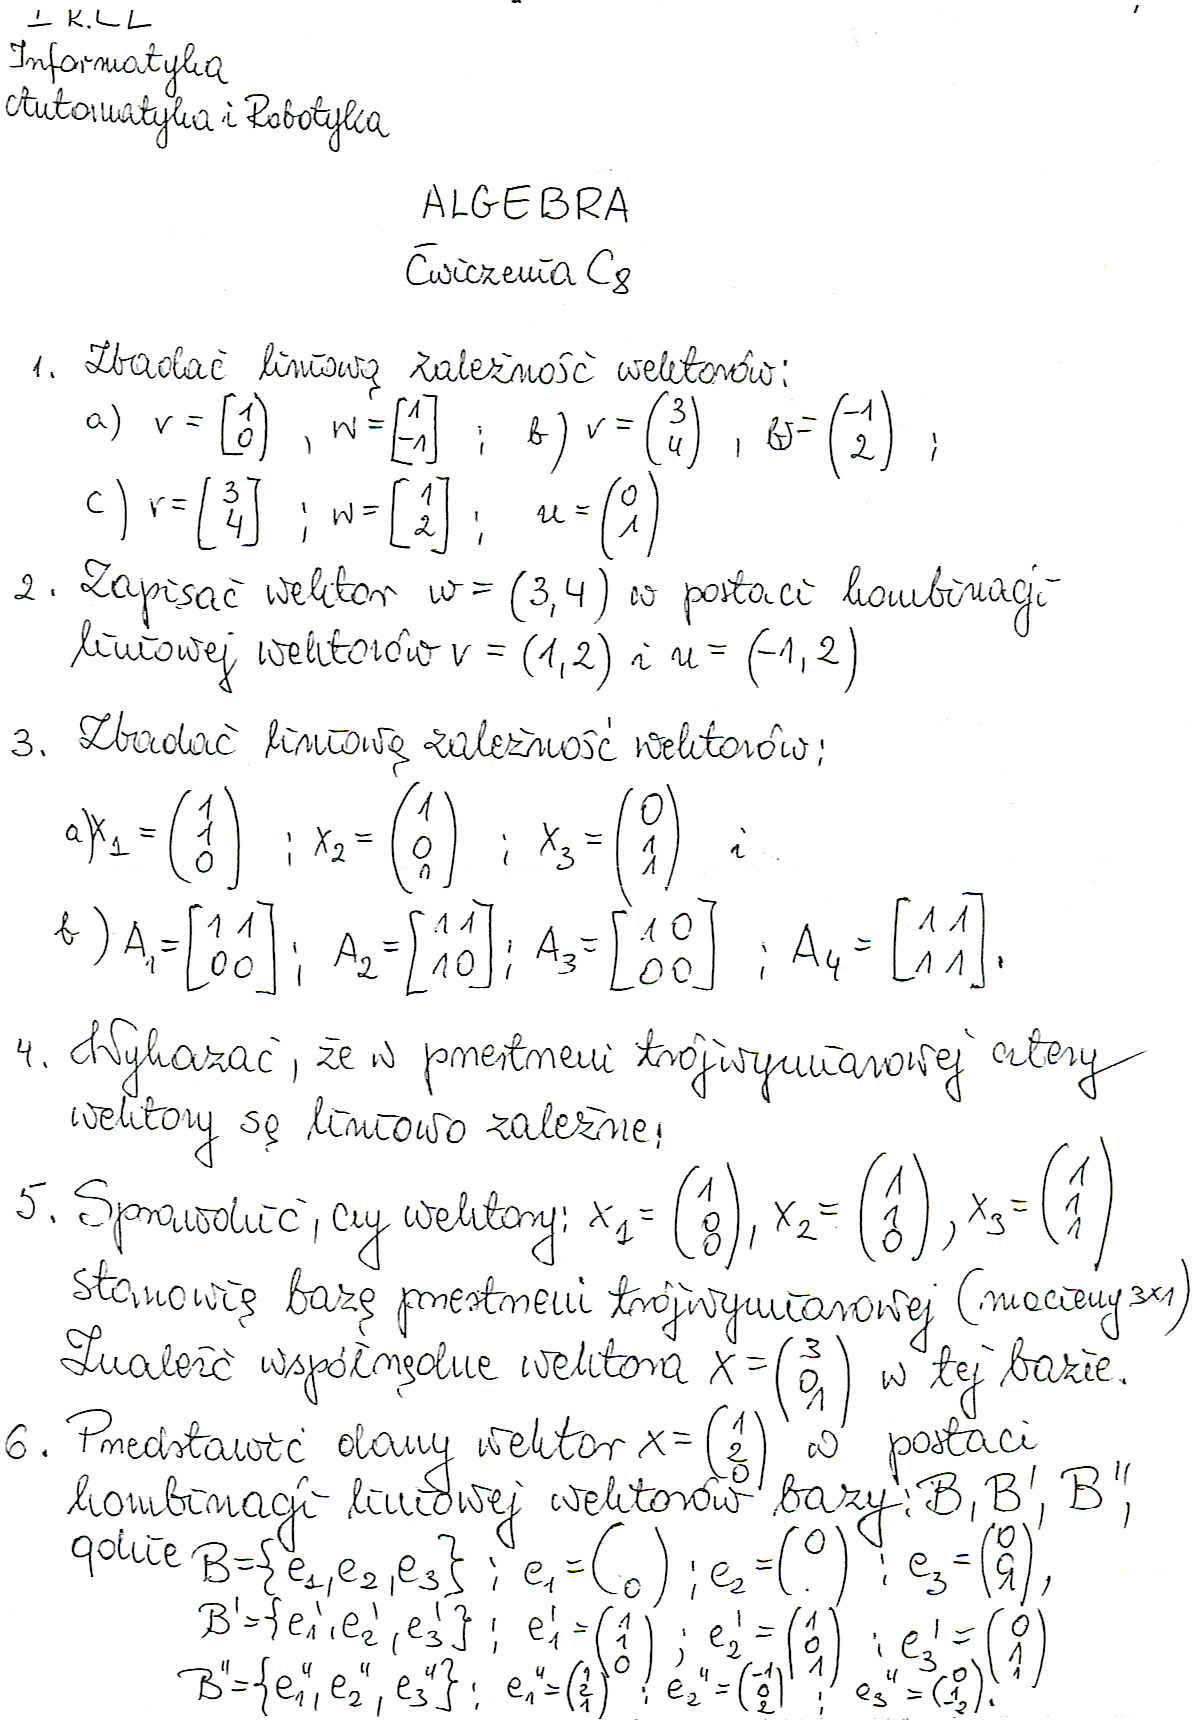 I K.LL
Informatyka
Automatyka i Robotyka
ALGEBRA
Ćwiczenia C8
1. Zbadać liniową zależność wektorów:
a) v = [1 0), w = [1 -1] ; b) v = (3 4), w = (-1 2) ;
c) v = [3 4] ; w = [1 2] ; u = (0 1)
2. Zapisać wektor w = (3,4) w postaci kombinacji
liniowej wektorów v = (1,2) i u = (-1,2)
3. Zbadać liniową zależność wektorów:
a) x1 = (1 1 0) ; x2 = (1 0 1) ; x3 = (0 1 1) i
b) A1 = [1 1 0 0] ; A2 = [1 1 1 0] ; A3 = [1 0 0 0] ; A4 = [1 1 1 1].
4. Wykazać, że w przestrzeni trójwymiarowej cztery
wektory są liniowo zależne;
5. Sprawdzić, czy wektory: x1 = (1 0 0), x2 = (1 1 0), x3 = (1 1 1)
stanowią bazę przestrzeni trójwymiarowej (macierzy 3x1)
Znaleźć współrzędne wektora x = (3 0 1) w tej bazie.
6. Przedstawić dany wektor x = (1 2 0) w postaci
kombinacji liniowej wektorów bazy: B, B', B'',
gdzie B = {e1, e2, e3} ; e1 = ( 0) ; e2 = (0 ) ; e3 = (0 0 1),
B' = {e1', e2', e3'} ; e1' = (1 1 0) ; e2' = (1 0 1) ; e3' = (0 1 1)
B'' = {e1'', e2'', e3''} ; e1'' = (1 2 1) ; e2'' = (-1 0 2) ; e3'' = (0 1 -2).